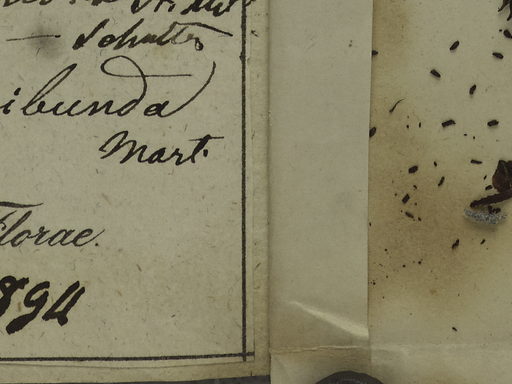 Schultes
ibunda
Mart.
Florae.
894